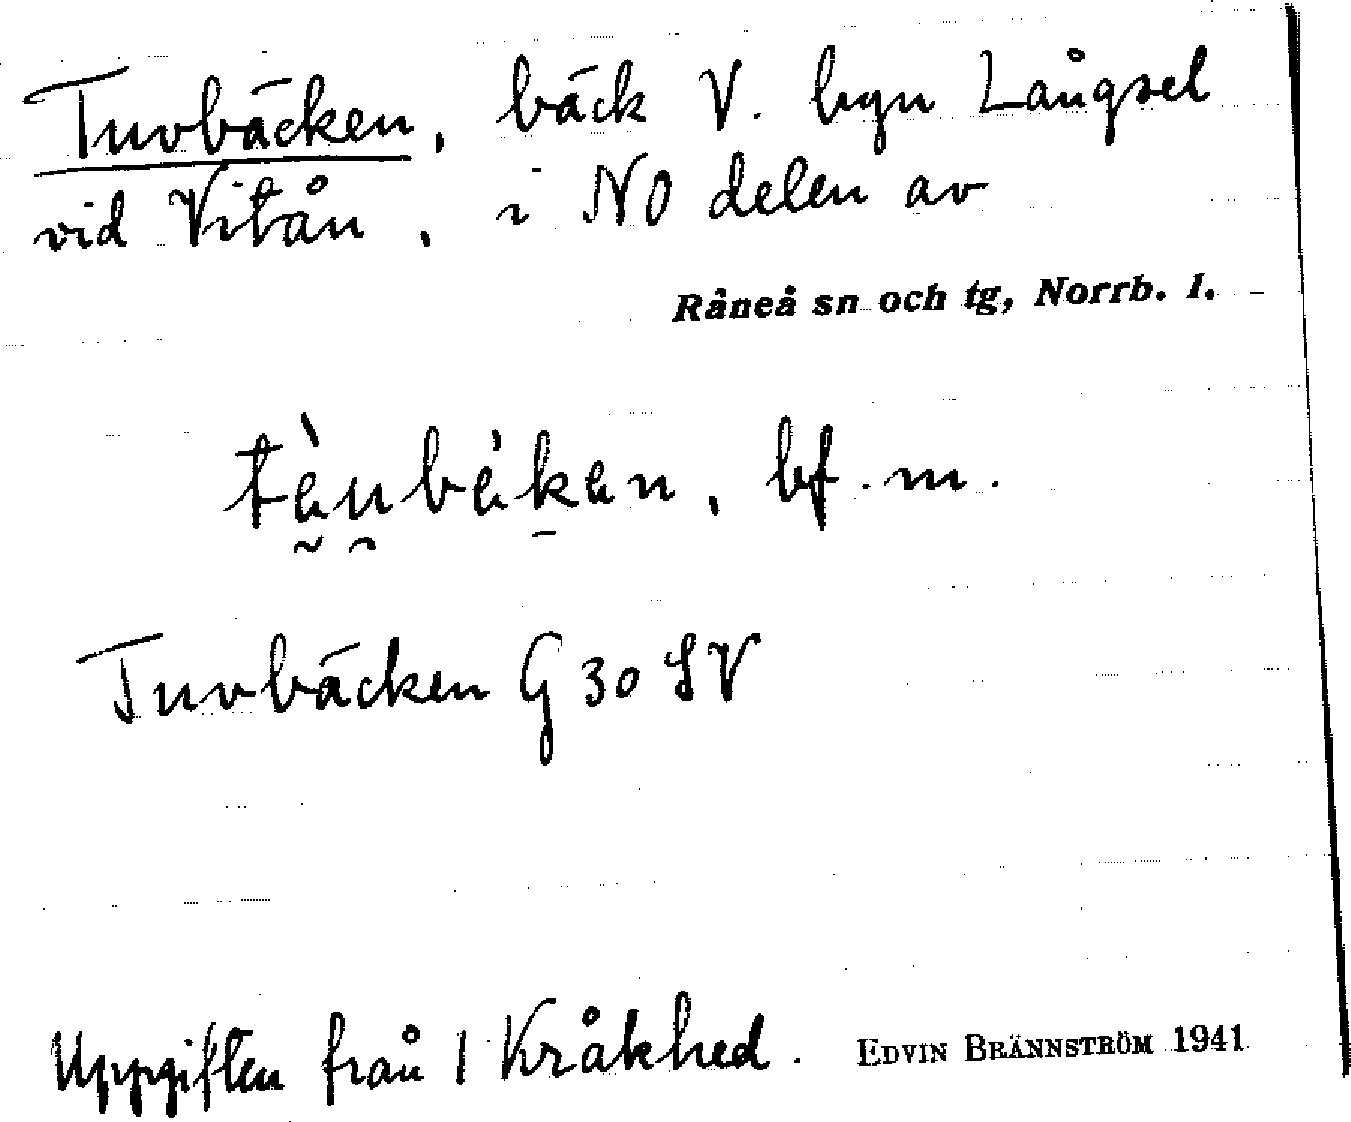 Tuvbäcken, bäck V. byn Långsel
vid Vitån, i NO delen av
Råneå sn och tg, Norrb. l.
bf. m.
Tuvbäcken G 30 SV
Uppgiften från 1 Kråkhed. EDVIN BRÄNNSTRÖM 1941